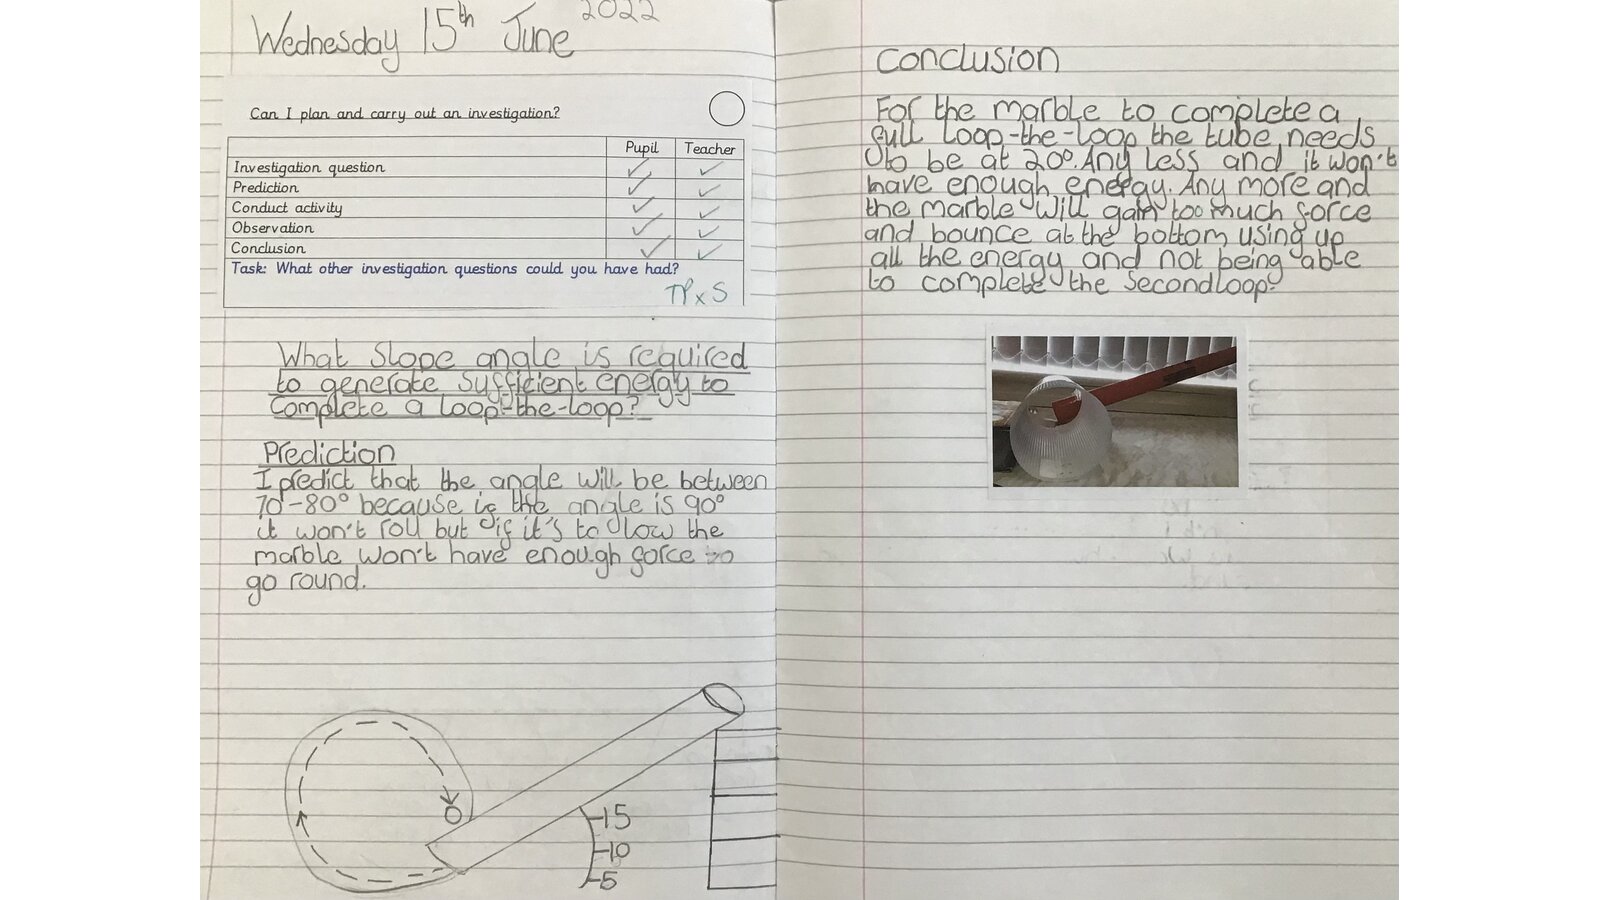 Wednesday 15th June 2022
Can I plan and carry out an investigation?
Pupil Teacher
Investigation question ✓ ✓
Prediction ✓ ✓
Conduct activity ✓ ✓
Observation ✓ ✓
Conclusion ✓ ✓
Task: What other investigation questions could you have had?
TP x S
What slope angle is required
to generate sufficient energy to
complete a loop-the-loop?
Prediction
I predict that the angle will be between
70-80° because if the angle is 90°
it won't roll but if it's to low the
marble won't have enough force to
go round.
15
10
5
Conclusion
For the marble to complete a
full loop-the-loop the tube needs
to be at 20°. Any less and it won't
have enough energy. Any more and
the marble will gain too much force
and bounce at the bottom using up
all the energy and not being able
to complete the second loop.